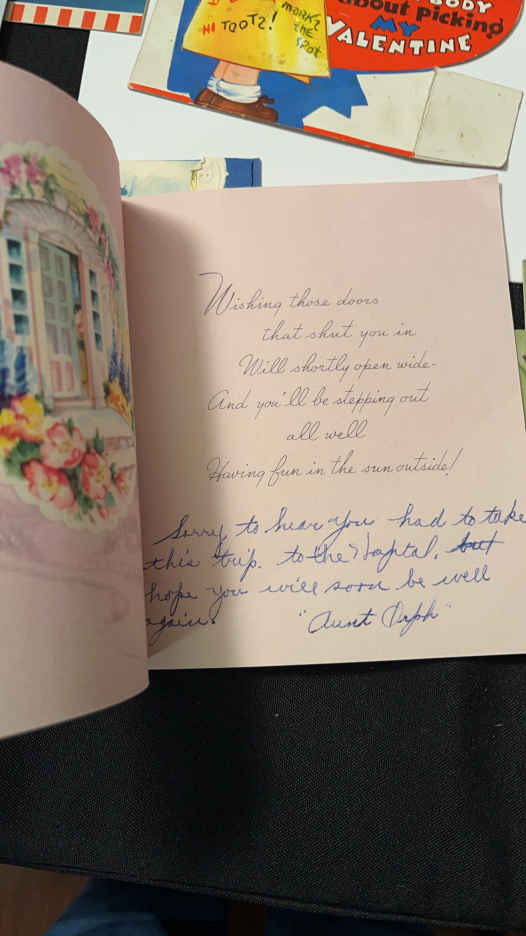 BODY
about Picking
MY
VALENTINE
HI TOOTZ!
MARKS
THE
SPOT
Wishing those doors
that shut you in
Will shortly open wide-
And you'll be stepping out
all well
Having fun in the sun outside!
Sorry to hear you had to take
this trip. to the Hospital, but
hope you will soon be well
again. "Aunt Orph"